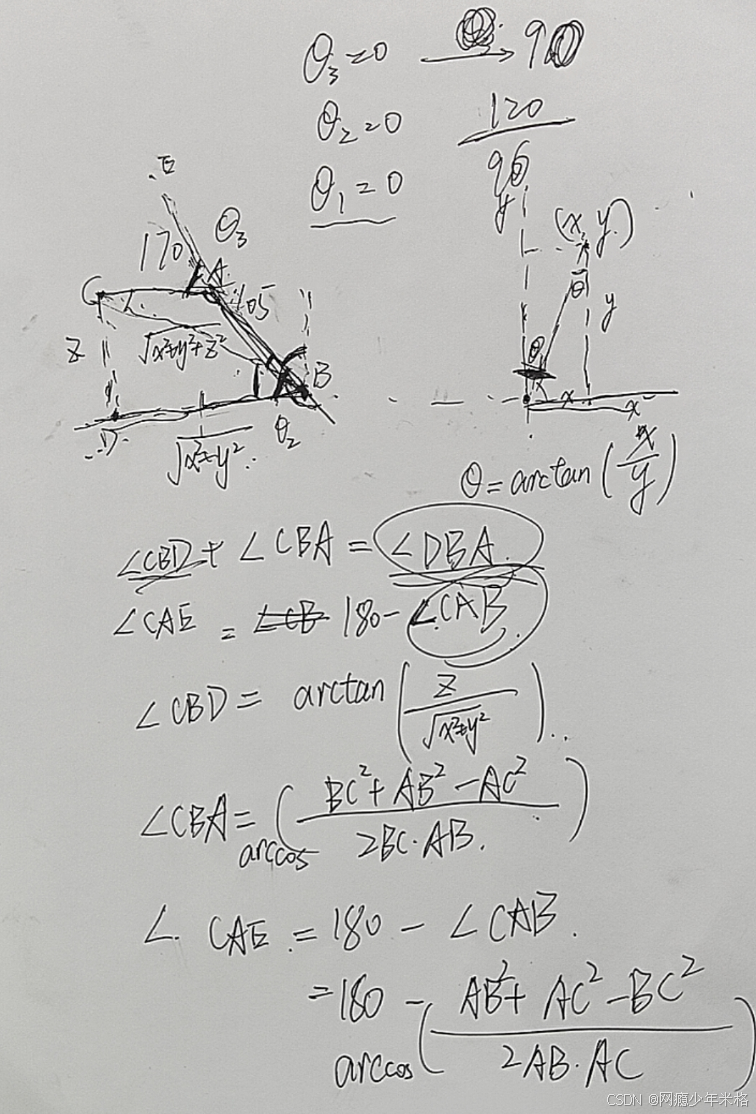 θ₃=0 → 90
θ₂=0 120
θ₁=0 96
E
θ₃
170
A
C
105
Z
√x²+y²+z²
B
D
√x²+y²
θ₂
y
(x, y)
θ
y
θ
x
x
θ=arctan(x/y)
∠CBD + ∠CBA = ∠DBA.
∠CAE = ∠CB 180-∠CAB
∠CBD = arctan(Z/√x²+y²)..
∠CBA = arccos(BC²+AB²-AC²/2BC·AB.)
∠. CAE = 180 - ∠CAB.
=180 - arccos(AB²+AC²-BC²/2AB·AC)
CSDN @网瘾少年米格